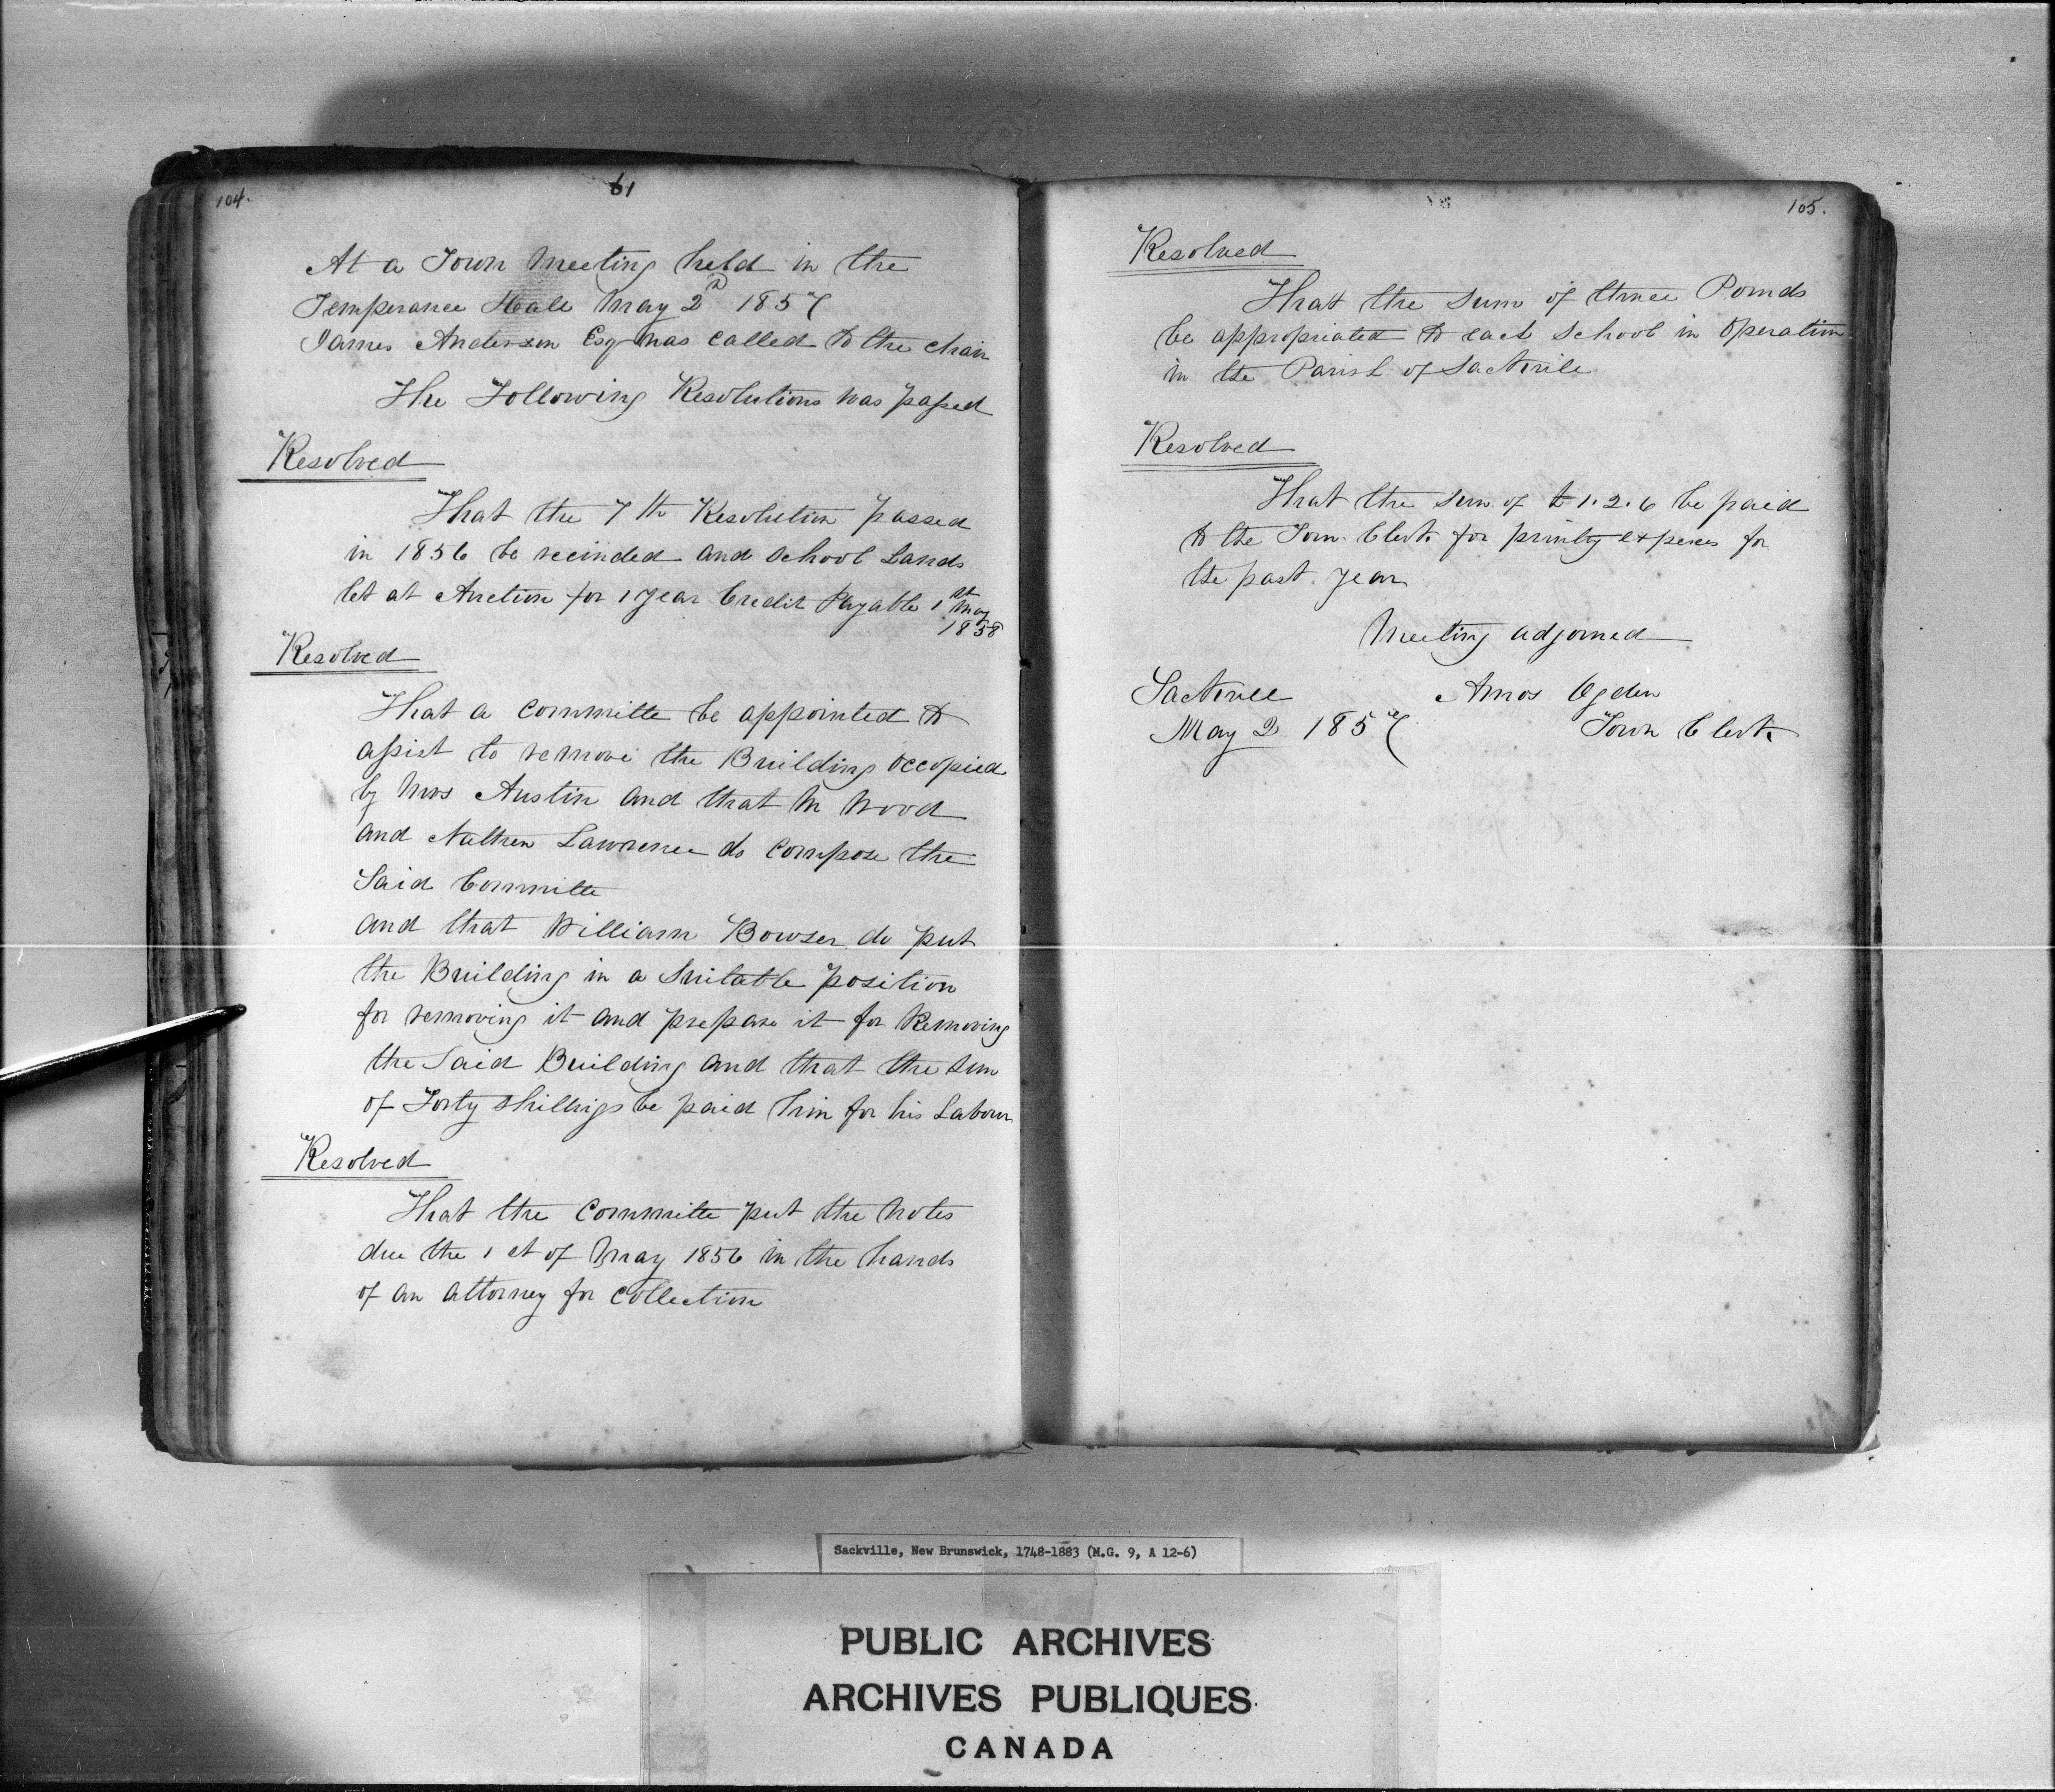 104.
61
At a Town Meeting held in the
Temperance Hall May 2d 1857
James Anderson Esq was called to the chair
The Following Resolutions was passed
Resolved
That the 7th Resolution passed
in 1856 be recinded and School Lands
let at Auction for 1 year Credit Payable 1st May
1858
Resolved
That a Committe be appointed to
assist to remove the Building occopied
by Mrs Austin and that M Wood
and Nathen Lawrence do compose the
Said Committe
and that William Bowser do put
the Building in a Suitable position
for removing it and prepare it for Removing
the Said Building and that the Sum
of Forty Shillings be paid him for his Labour
Resolved
That the Committe put the Notes
due the 1st of May 1856 in the hands
of an attorney for Collection
105.
Resolved
That the Sum of three Pounds
be appropriated to each School in Operation
in the Parish of Sackville
Resolved
That the Sum of £1.2.6 be paid
to the Town Clerk for printg expences for
the past year
Meeting adjorned
Sackville Amos Ogden
May 2 1857 Town Clerk
Sackville, New Brunswick, 1748-1883 (M.G. 9, A 12-6)
PUBLIC ARCHIVES
ARCHIVES PUBLIQUES
CANADA